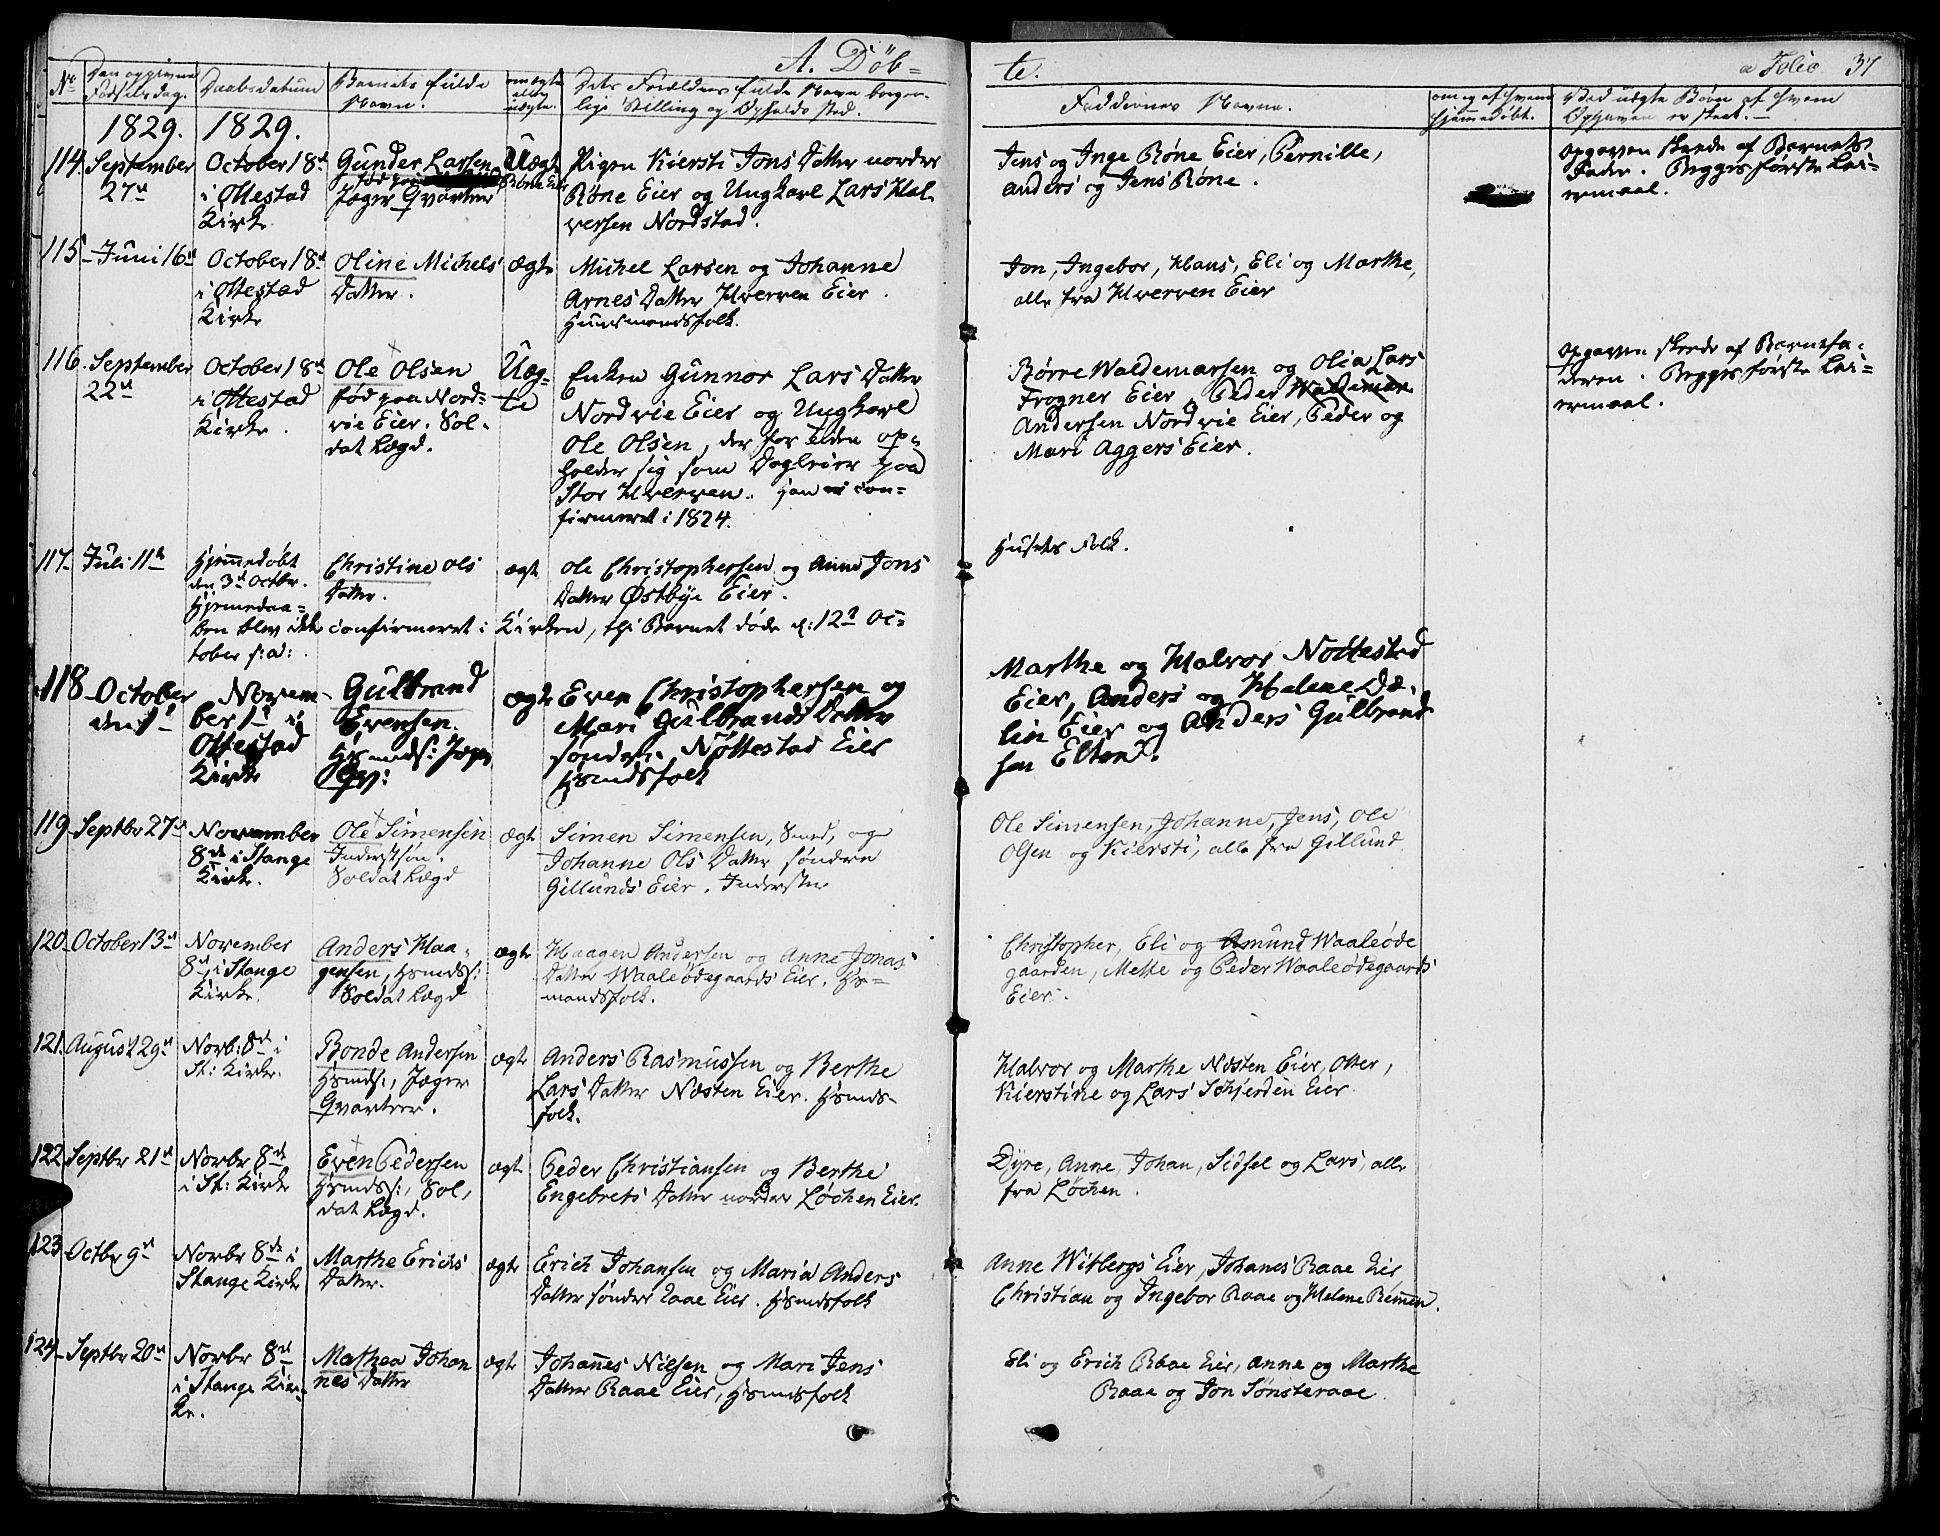 A. Døb=
te.
a Folio 37
No
Den opgivne Fødselsdag.
Daabsdatum
Barnets fulde Navn.
om ægte eller uægte.
Dets Forældres fulde Navn borger-
lige Stilling og Opholds sted.
Faddernes Navne.
om og af hvem hjemmedøbt.
Ved uægte Børn af hvem
Opgaven er skeet.
1829.
1829.
114
September
27de
October 18de
i Ottestad
Kirke
Gunder Larsen
født paa
Jæger Qvarteer
Uægte
Røne Eier
Pigen Kiersti Jons Datter nordre
Røne Eier og Ungkarl Lars Hal-
versen Nordstad.
Jens og Inge Røne Eier, Pernille,
Anders og Jens Røne.
Opgaven skeede af Barnets
Fader. Begges første Lei-
ermaal.
115
Juni 16de
October 18de
i Ottestad
Kirke
Oline Michels
Datter.
ægte
Michel Larsen og Johanne
Arnes Datter Hverven Eier.
Huusmandsfolk.
Jon, Ingebor, Hans, Eli og Marthe,
alle fra Hverven Eier
116
September
22de
October 18de
i Ottestad
Kirke.
Ole Olsen
født paa Nord-
vie Eier. Sol-
dat Lægd.
Uæg-
te
Enken Gunnor Lars Datter
Nordvie Eier og Ungkarl
Ole Olsen, der for Tiden op-
holder sig som Dagleier paa
Stor Hverven. Han er con-
firmeret i 1824.
Børre Waldemarsen og Olia Lars
Frogner Eier, Peder Waldemar
Andersen Nordvie Eier, Peder og
Mari Aggers Eier.
Opgaven skeede af Barnefa-
deren. Begges første Lei-
ermaal.
117
Juli 11te
Hjemmedøbt
den 3de Octbr.
Hjemmedaa-
Christine Ols
Datter.
ægte
Ole Christophersen og Anne Jons
Datter Østbye Eier.
Husets Folk.
ben blev ikke confirmeret i Kirken, thi Barnet døde d: 12te Oc-
tober s: A:.
118
October
den 1ste
Novem-
ber 1ste i
Ottestad
Kirke
Gulbrand
Evensen.
Hsmds: Jæger
Qv:
ægte
Even Christophersen og
Mari Gulbrands Datter
søndre Nøttestad Eier
Hsmdsfolk
Marthe og Halvor Nøttestad
Eier, Anders og Helene Dæ-
lin Eier og Anders Gulbrand
sen Elton.
119
Septbr 27de
November
8de i Stange
Kirke.
Ole Simensen
Inderstsøn.
Soldat Lægd
ægte
Simen Simensen, Smed, og
Johanne Ols Datter søndre
Gillunds Eier. Inderster
Ole Simensen, Johanne, Jens, Ole
Olsen og Kiersti, alle fra Gillund.
120
October 13de
November
8de i Stange
Kirke.
Anders Haa-
gensen, Hsmds:
Soldat Lægd
ægte
Haagen Andersen og Anne Jonas
Datter Waaleødegaards Eier. Hs-
mandsfolk.
Christopher, Eli og Amund Waaleøde
gaarden, Mette og Peder Waaleødegaards
Eier.
121
August 29de
Novb: 8de i
St: Kirke.
Bonde Andersen
Hsmds:, Jæger
Qvarteer.
ægte
Anders Rasmussen og Berthe
Lars Datter Næsten Eier. Hsmds-
folk.
Halvor og Marthe Næsten Eier, Otter,
Kierstine og Lars Schjerden Eier
122
Septbr 21de
Novbr 8de
i St: Kirke
Even Pedersen
Hsmds:, Sol,
dat Lægd.
ægte
Peder Christiansen og Berthe
Engebrets Datter nordre Løchen Eier.
Dyre, Anne, Johan, Sidsel og Lars, alle
fra Løchen.
123
Octbr 9de
Novbr 8de i
Stange Kirke
Marthe Erichs
Datter.
ægte
Erich Johansen og Maria Anders
Datter søndre Raae Eier. Hsmdsfolk
Anne Witbergs Eier, Johanes Raae Eier
Christian og Ingebor Raae og Helene Remmen.
124
Septbr 20de
Novbr 8de
i Stange Kir-
ke.
Mathea Johan
nes Datter
ægte
Johannes Nilsen og Mari Jens
Datter Raae Eier, Hsmdsfolk
Eli og Erich Raae Eier, Anne og Marthe
Raae og Jon Sønsteraae.